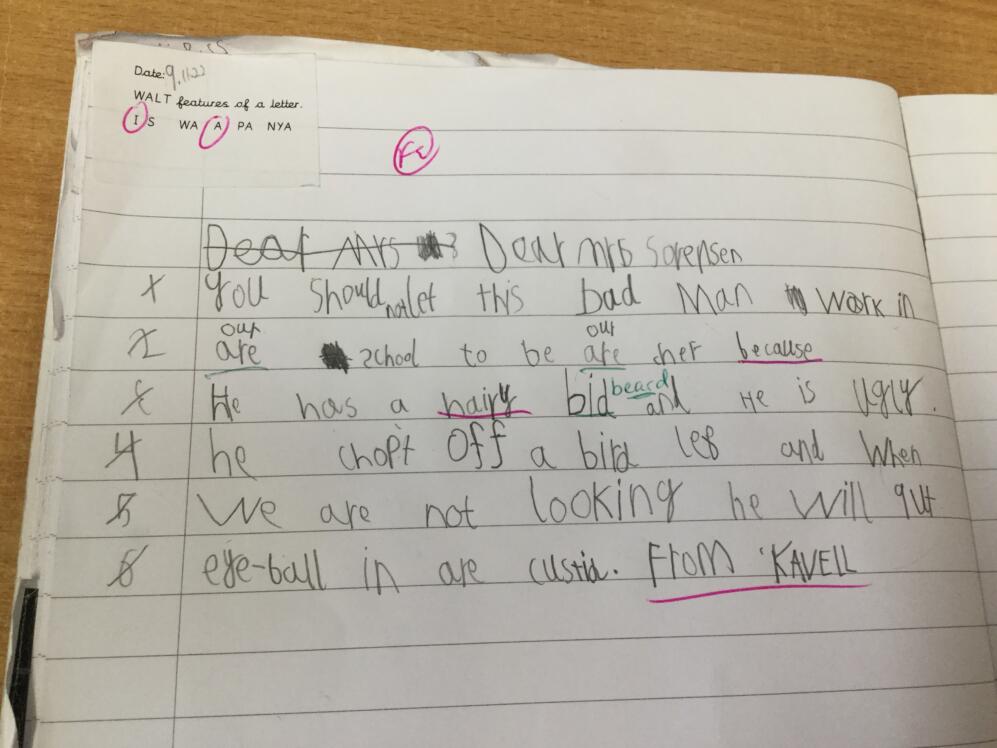 Date: 9.11.22
WALT features of a letter.
I S WA A PA NYA
Fc
Dear Mrs Dear mrs Sorensen
You should not let this bad Man work in
our our
are school to be are cher because
He has a hairy bid beard and He is Ugly.
4 he chopt off a bird leg and when
5 We are not looking he will put
6 eye-ball in are custid. From KAVELL